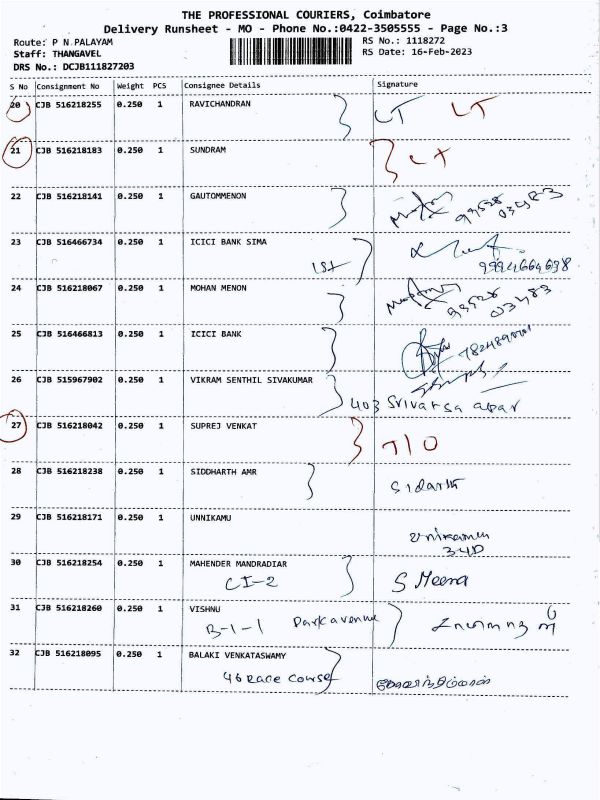 THE PROFESSIONAL COURIERS, Coimbatore
Delivery Runsheet - MO - Phone No.:0422-3505555 - Page No.:3
Route: P N PALAYAM
RS No.: 1118272
Staff: THANGAVEL
RS Date: 16-Feb-2023
DRS No.: DCJB111827203
S No Consignment No Weight PCS Consignee Details Signature
20 CJB 516218255 0.250 1 RAVICHANDRAN LT LT
21 CJB 516218183 0.250 1 SUNDRAM
22 CJB 516218141 0.250 1 GAUTOMMENON
23 CJB 516466734 0.250 1 ICICI BANK SIMA
24 CJB 516218067 0.250 1 MOHAN MENON
25 CJB 516466813 0.250 1 ICICI BANK
26 CJB 515967902 0.250 1 VIKRAM SENTHIL SIVAKUMAR
403 Srivatsa apar
27 CJB 516218042 0.250 1 SUPREJ VENKAT
28 CJB 516218238 0.250 1 SIDDHARTH AMR
29 CJB 516218171 0.250 1 UNNIKAMU
30 CJB 516218254 0.250 1 MAHENDER MANDRADIAR
CI-2 S Meena
31 CJB 516218260 0.250 1 VISHNU
B-1-1 Park avenue
32 CJB 516218095 0.250 1 BALAKI VENKATASWAMY
46 Race Course